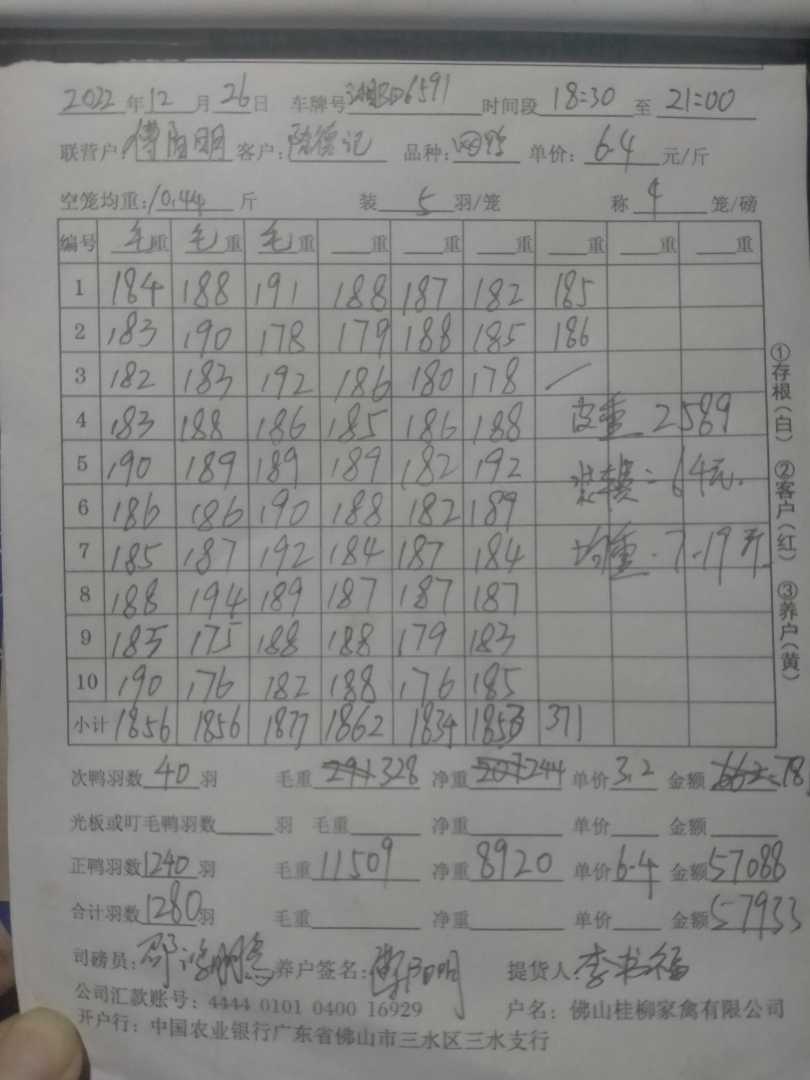 2022年12月26日 车牌号湘BD6591 时间段18:30至21:00
联营户:傅阳明 客户:陆德记 品种: 单价:6.4元/斤
空笼均重:10.44斤 装5羽/笼 称4笼/磅
编号 毛重 毛重 毛重 重 重 重 重 重 重
1 184 188 191 188 187 182 185
2 183 190 178 179 188 185 186
3 182 183 192 186 180 178 /
4 183 188 186 185 186 188 皮重 2589
5 190 189 189 189 182 192 装车费=64元.
6 186 186 190 188 182 189
7 185 187 192 184 187 184 均重.7.19斤
8 188 194 189 187 187 187
9 185 175 188 188 179 183
10 190 176 182 188 176 185
小计 1856 1856 1877 1862 1834 1853 371
①存根(白) ②客户(红) ③养户(黄)
次鸭羽数40羽 毛重328 净重244 单价3.2 金额78
光板或叮毛鸭羽数 羽 毛重 净重 单价 金额
正鸭羽数1240羽 毛重11509 净重8920 单价6.4 金额57088
合计羽数1280羽 毛重 净重 单价 金额57933
司磅员: 养户签名:傅阳明 提货人李书福
公司汇款账号:4444 0101 0400 16929 户名:佛山桂柳家禽有限公司
开户行:中国农业银行广东省佛山市三水区三水支行